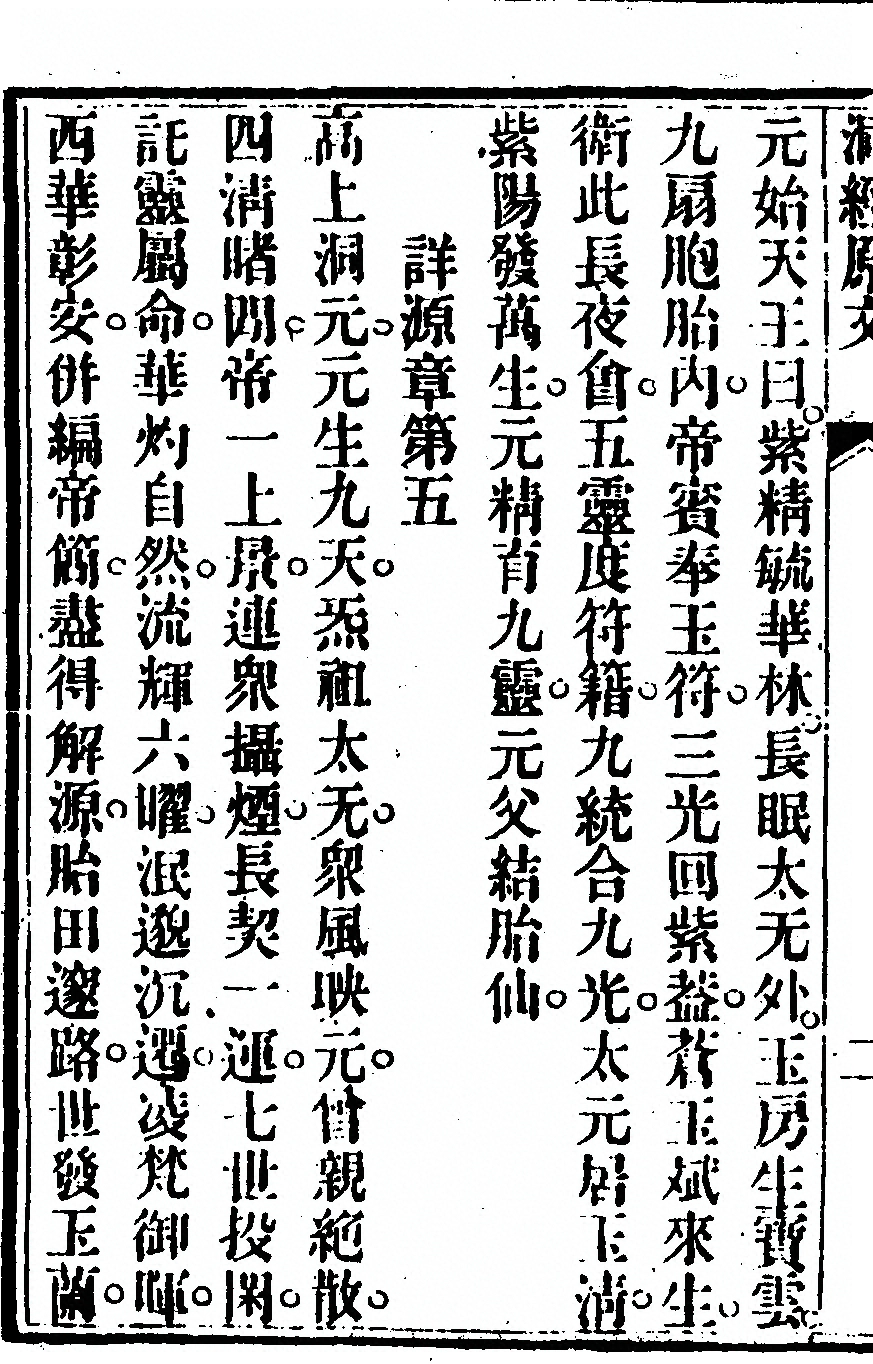 洞經原文
元始天王曰。紫精毓華林。長眠太无外。玉房生寶雲。
九扇胞胎內。帝賓奉玉符。三光回紫蓋。蒼玉斌來生。
衛此長夜會。五靈度符籍。九統合九光。太元居玉清。
紫陽發萬生。元精育九靈。元父結胎仙。
詳源章第五
高上洞元。元生九天。炁祖太无。眾風映元。曾親絕散。
四清睹閉。帝一上景。連眾攝煙。長契一運。七世投閑。
託靈屬命。華灼自然。流輝六曜。泯邈沉遏。凌梵御暉。
西華彰安。併編帝簡。盡得解源。胎田邃路。世發玉蘭。